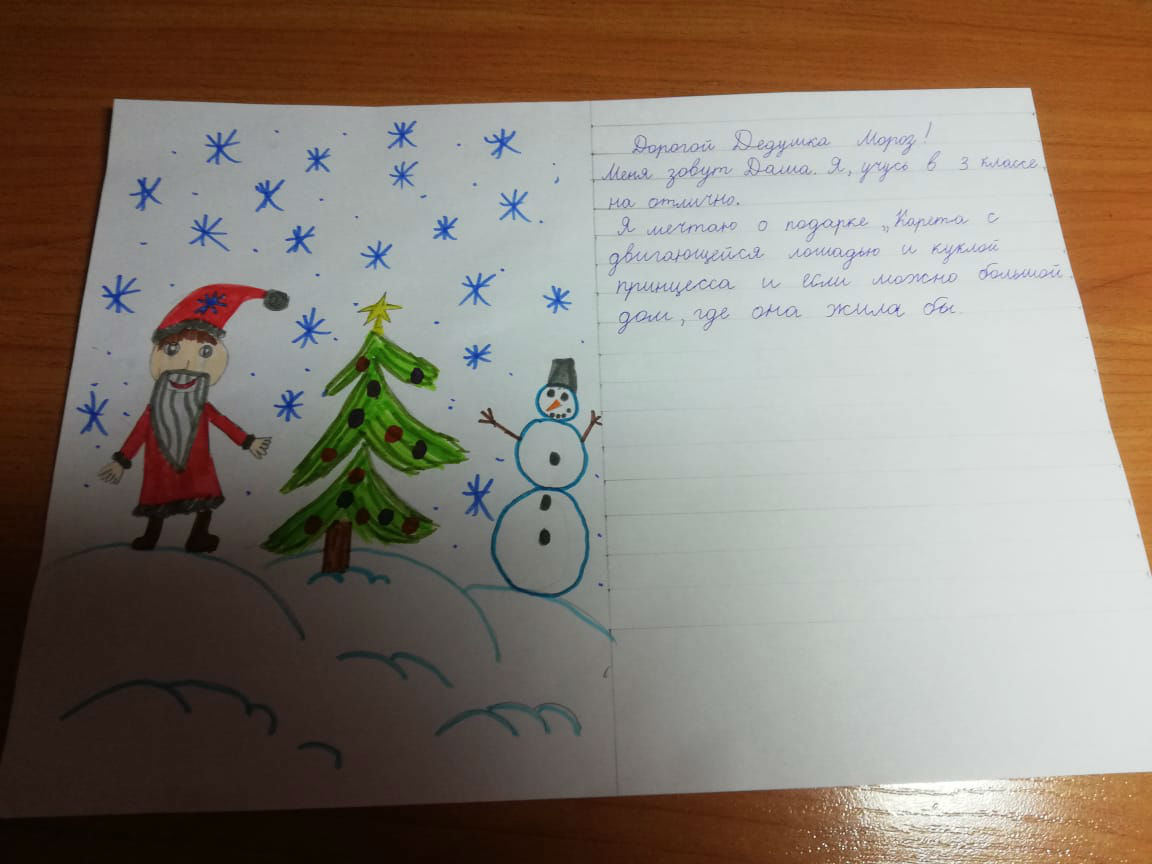 Дорогой Дедушка Мороз!
Меня зовут Даша. Я, учусь в 3 классе,
на отлично.
Я мечтаю о подарке „Карета с
двигающейся лошадью и куклой
принцесса и если можно большой
дом, где она жила бы.